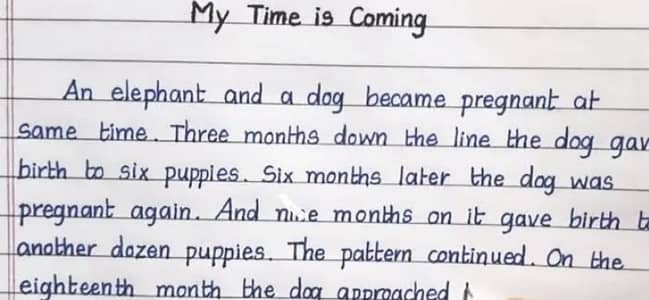 My Time is Coming
An elephant and a dog became pregnant at
same time. Three months down the line the dog gav
birth to six puppies. Six months later the dog was
pregnant again. And nine months on it gave birth t
another dozen puppies. The pattern continued. On the
eighteenth month the dog approached